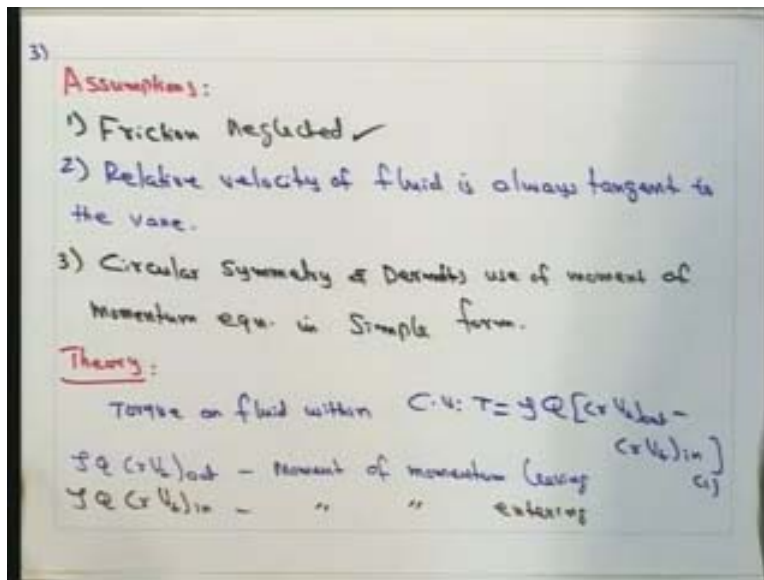 3)
Assumptions:
1) Friction Neglected ✓
2) Relative velocity of fluid is always tangent to
the vane.
3) Circular Symmetry & Permits use of moment of
Momentum equ. in Simple form.
Theory:
Torque on fluid within C.V: T = ρQ[(rVt)out -
(rVt)in]
ρQ (rVt)out - Moment of momentum leaving (1)
ρQ (rVt)in - " " entering